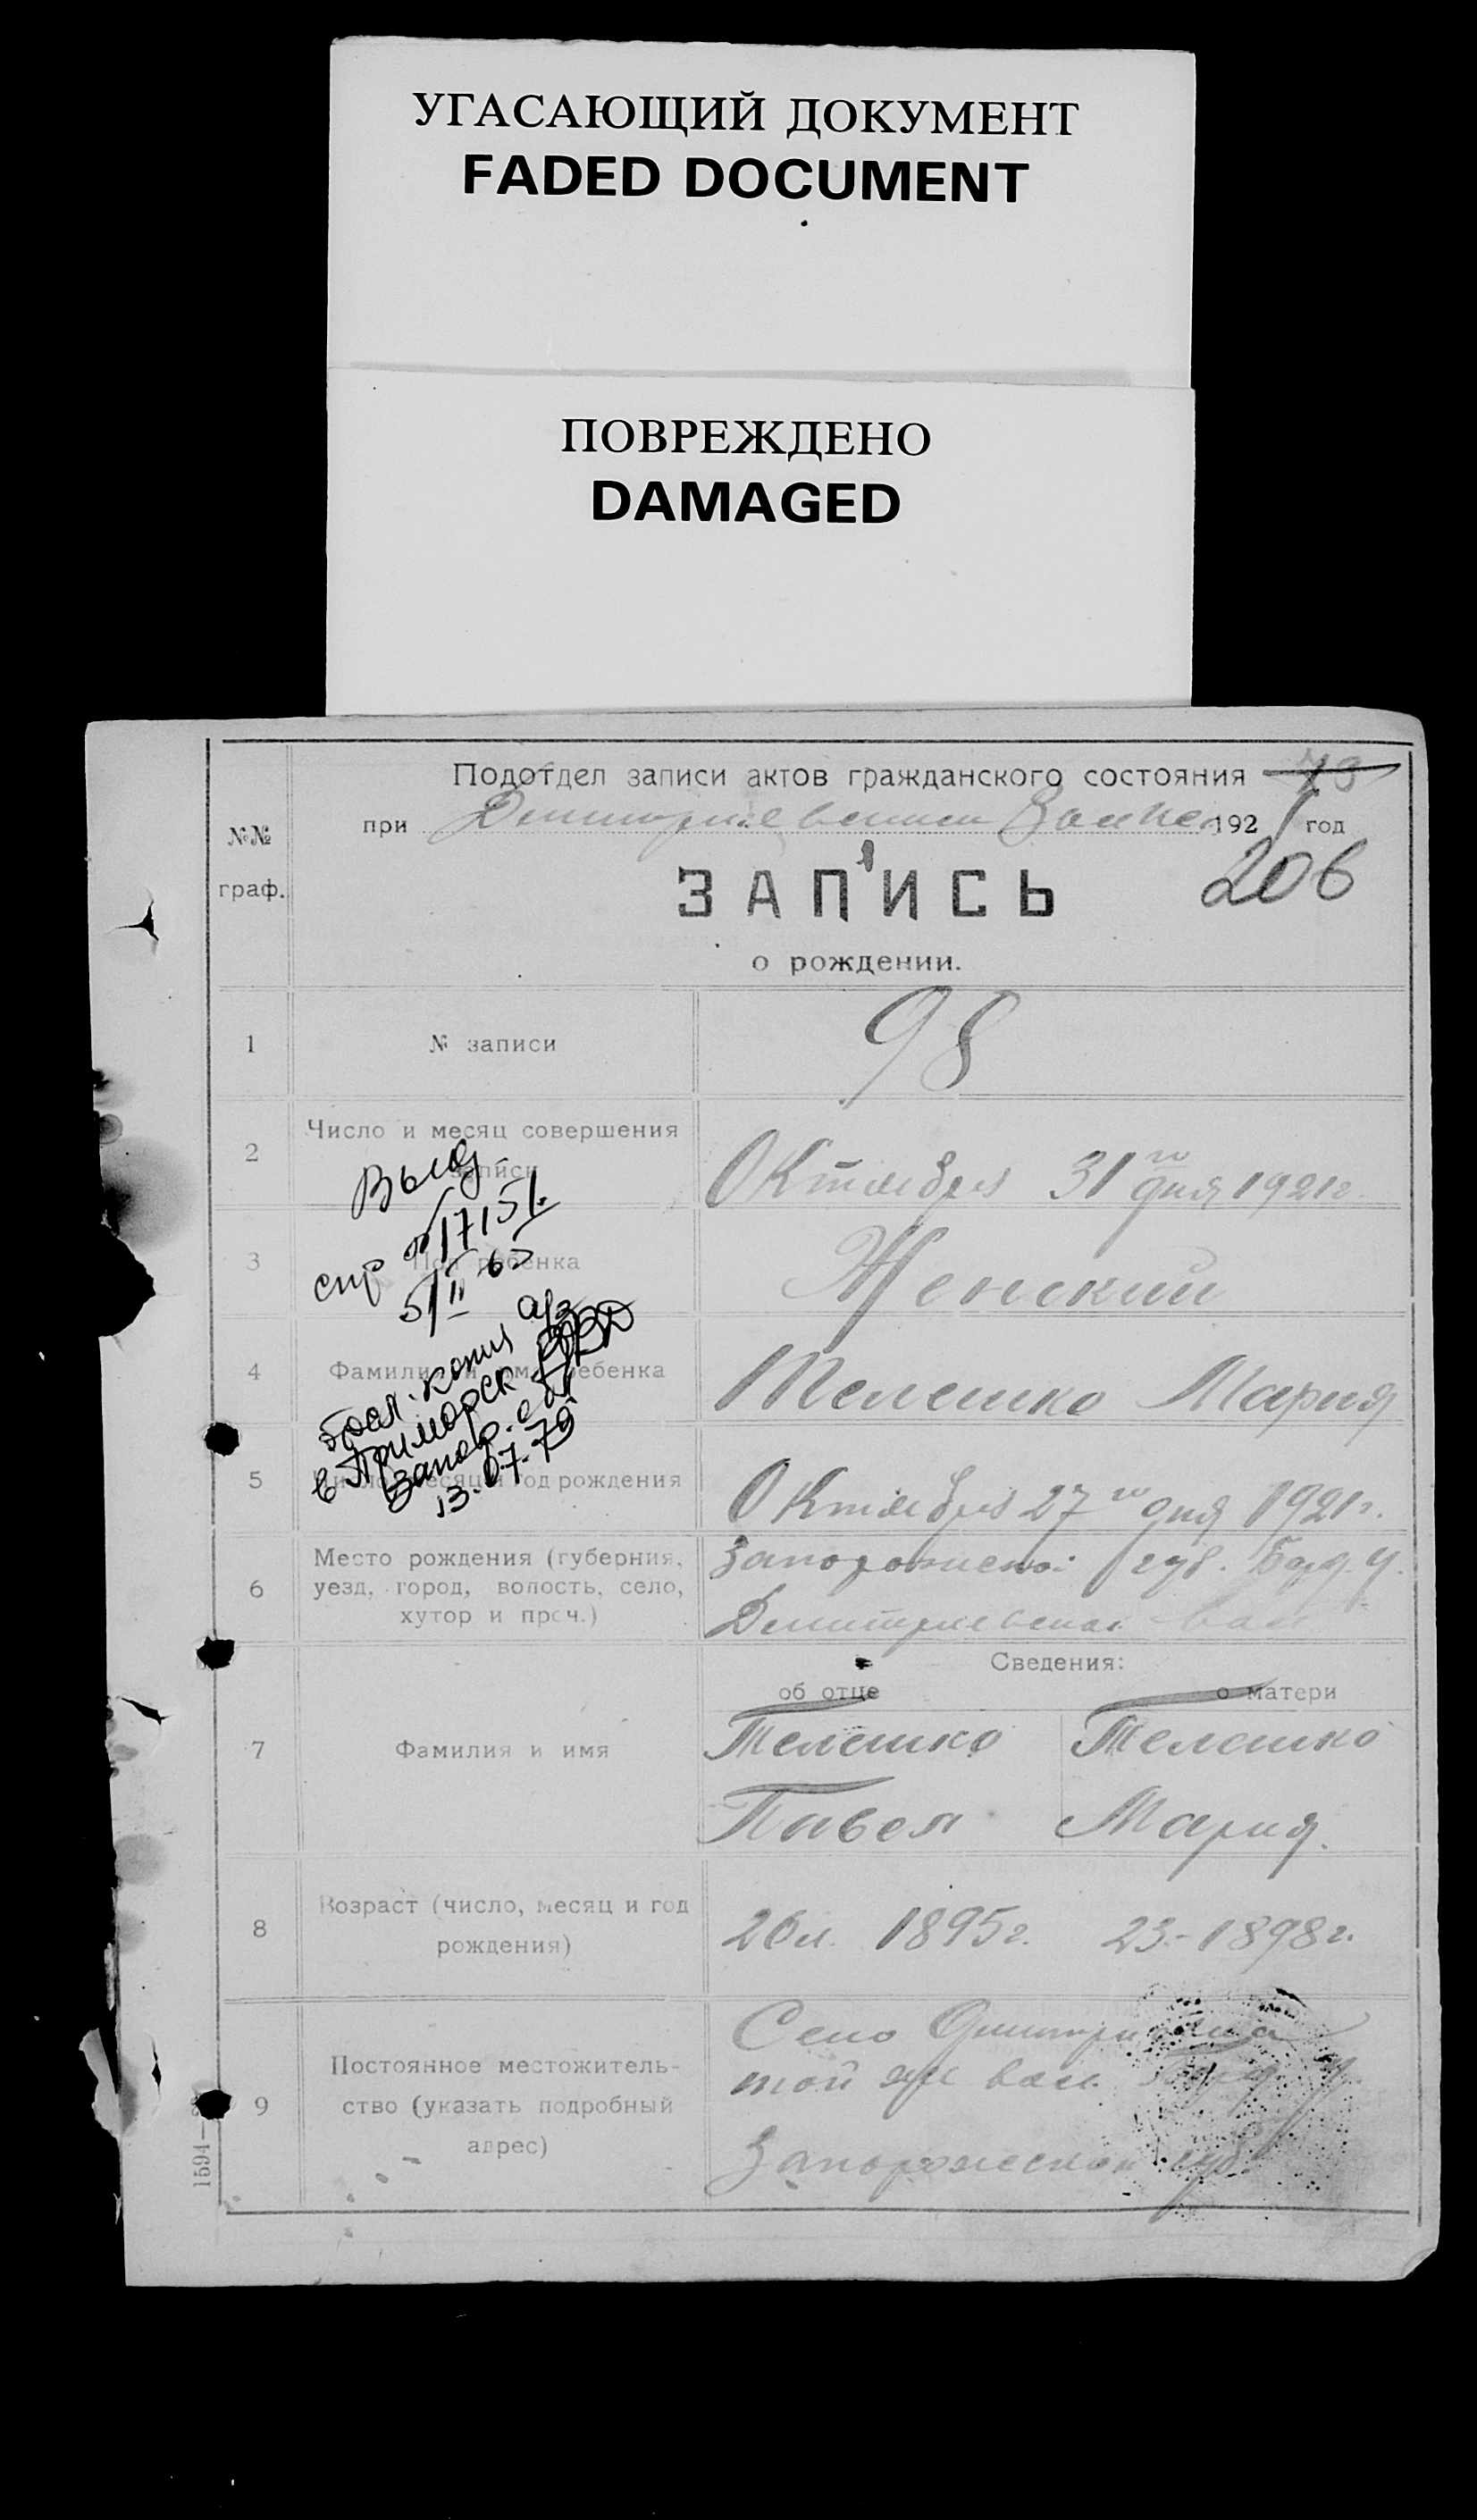 УГАСАЮЩИЙ ДОКУМЕНТ
FADED DOCUMENT
ПОВРЕЖДЕНО
DAMAGED
Подотдел записи актов гражданского состояния 73
при 1921 год
№№
граф.
ЗАПИСЬ
206
о рождении.
1 № записи 98
2 Число и месяц совершения
записи
Октября 31 го дня 1921 г.
Выд
спр № 17151.
3 Пол ребенка Женский
4 Фамилия и имя ребенка Телешко Мария
копия а/з
в Приморск
Запор. обл
13.07.79
5 Число, месяц и год рождения Октября 27 го дня 1921 г.
6 Место рождения (губерния,
уезд, город, волость, село,
хутор и проч.)
губ. Берд. у.
Сведения:
об отце о матери
7 Фамилия и имя
Телешко Телешко
Павел Мария.
8 Возраст (число, месяц и год
рождения)
26 л. 1895 г. 23.-1898 г.
9 Постоянное местожитель-
ство (указать подробный
адрес)
Село
той же вол.
Запорожской губ.
1594—